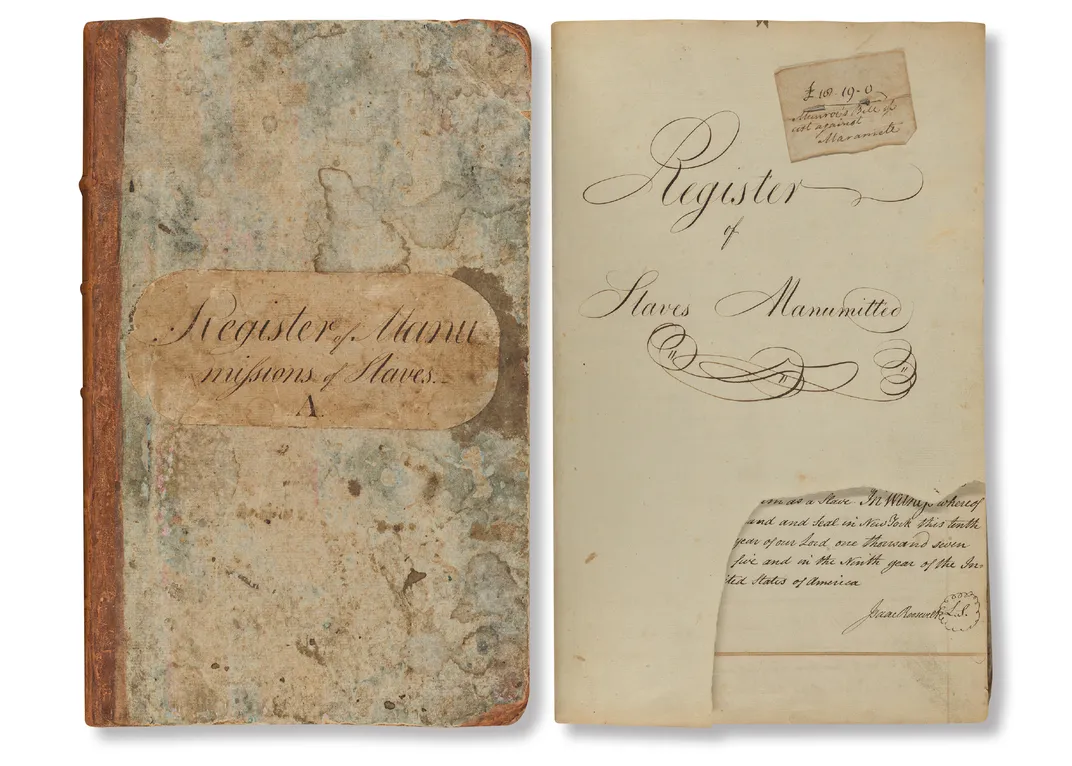 Register of Manu
missions of Slaves.
A
£18-19-0
Munroe's Bill of
cost against
Register
of
Slaves Manumitted
m as a Slave In Witness whereof
and and Seal in New York this tenth
year of our Lord one thousand seven
five and in the Ninth year of the In-
ted States of America
Isaac Roosevelt L.S.